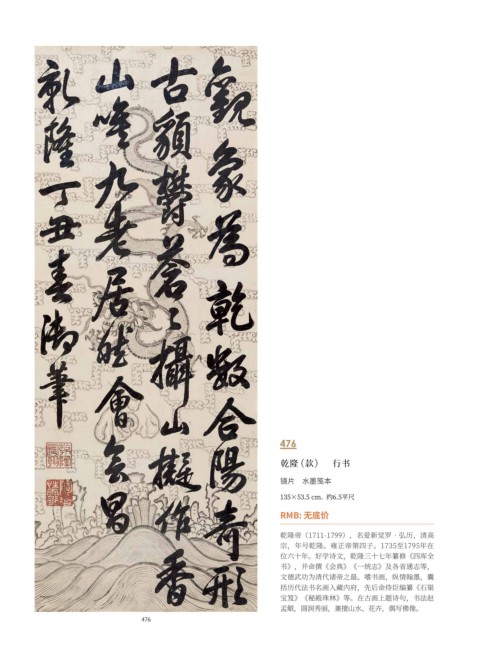 觀象為乾數合陽奇形
古貌欝蒼〻攝山擬作香
山喚九老居然會會昌
乾隆丁丑春御筆
476
476
乾隆（款） 行书
镜片 水墨笺本
135×53.5 cm. 约6.5平尺
RMB: 无底价
乾隆帝（1711-1799），名爱新觉罗·弘历，清高
宗，年号乾隆，雍正帝第四子。1735至1795年在
位六十年。好学诗文，乾隆三十七年纂修《四库全
书》，并命撰《会典》《一统志》及各省通志等，
文德武功为清代诸帝之最。嗜书画，纵情翰墨，囊
括历代法书名画入藏内府，先后命侍臣编纂《石渠
宝笈》《秘殿珠林》等。在古画上题诗句，书法赵
孟頫，圆润秀丽，兼擅山水、花卉，偶写佛像。